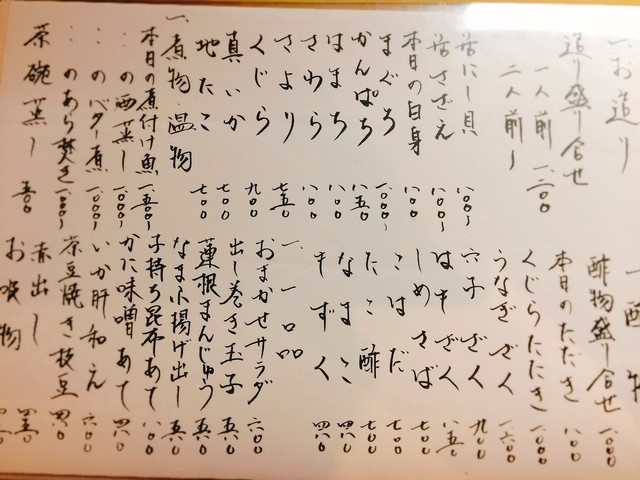 一、お造り
造り盛り合せ
一人前 一、二〇〇
二人前〜
活にし貝 一、〇〇〇〜
活さざえ 一、〇〇〇〜
本日の白身 一、〇〇〇
まぐろ 一、〇〇〇〜
かんぱち 八五〇
はまち 八〇〇
さわら 八〇〇
さより 七五〇
くじら 九〇〇
真いか 七〇〇
地たこ 七〇〇
一、煮物・温物
本日の煮付け魚 一、五〇〇〜
〃の酒蒸し 一、〇〇〇〜
〃のバター煮 一、〇〇〇〜
〃のあら焚き 一、〇〇〇〜
茶碗蒸し 五〇〇
一、酢物
酢物盛り合せ 一、〇〇〇
本日のたたき 八〇〇
くじらたたき 一、〇〇〇
うなぎざく 一、六〇〇
穴子ざく 九〇〇
はもざく 八五〇
しめさば 七〇〇
こはだ 七〇〇
たこ酢 七〇〇
なまこ 四八〇
もずく 四八〇
一、一品
おまかせサラダ 六〇〇
出し巻き玉子 五五〇
蓮根まんじゅう 五五〇
なま小揚げ出し 五五〇
子持ち昆布あて 八〇〇
かに味噌あて 四八〇
いか肝和え 六〇〇
茶豆焼き枝豆 四八〇
赤出し 四五〇
お吸物